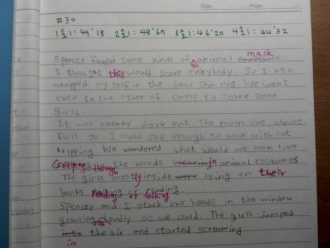 #30
1호1: 44'18 2호1: 48'60 3호1: 46'20 4호1: 44'32
mask
Spencer found some kinds of animal
I thought they would scare everybody. So I also
wrapped myself in the bear skin rug. We went
over to the other camp to scare some
girls.
It was already dark out. The moon was almost
full so I could see enough to walk without
tripping. We wondered what would we look like
Creeping through the woods wearing in animal costumes
The girls mostly inside were lying on their
bunks reading or talking
Spencer and I stuck our heads in the window
growling loudly as we could. The girls jumped
into the air and started screaming
in